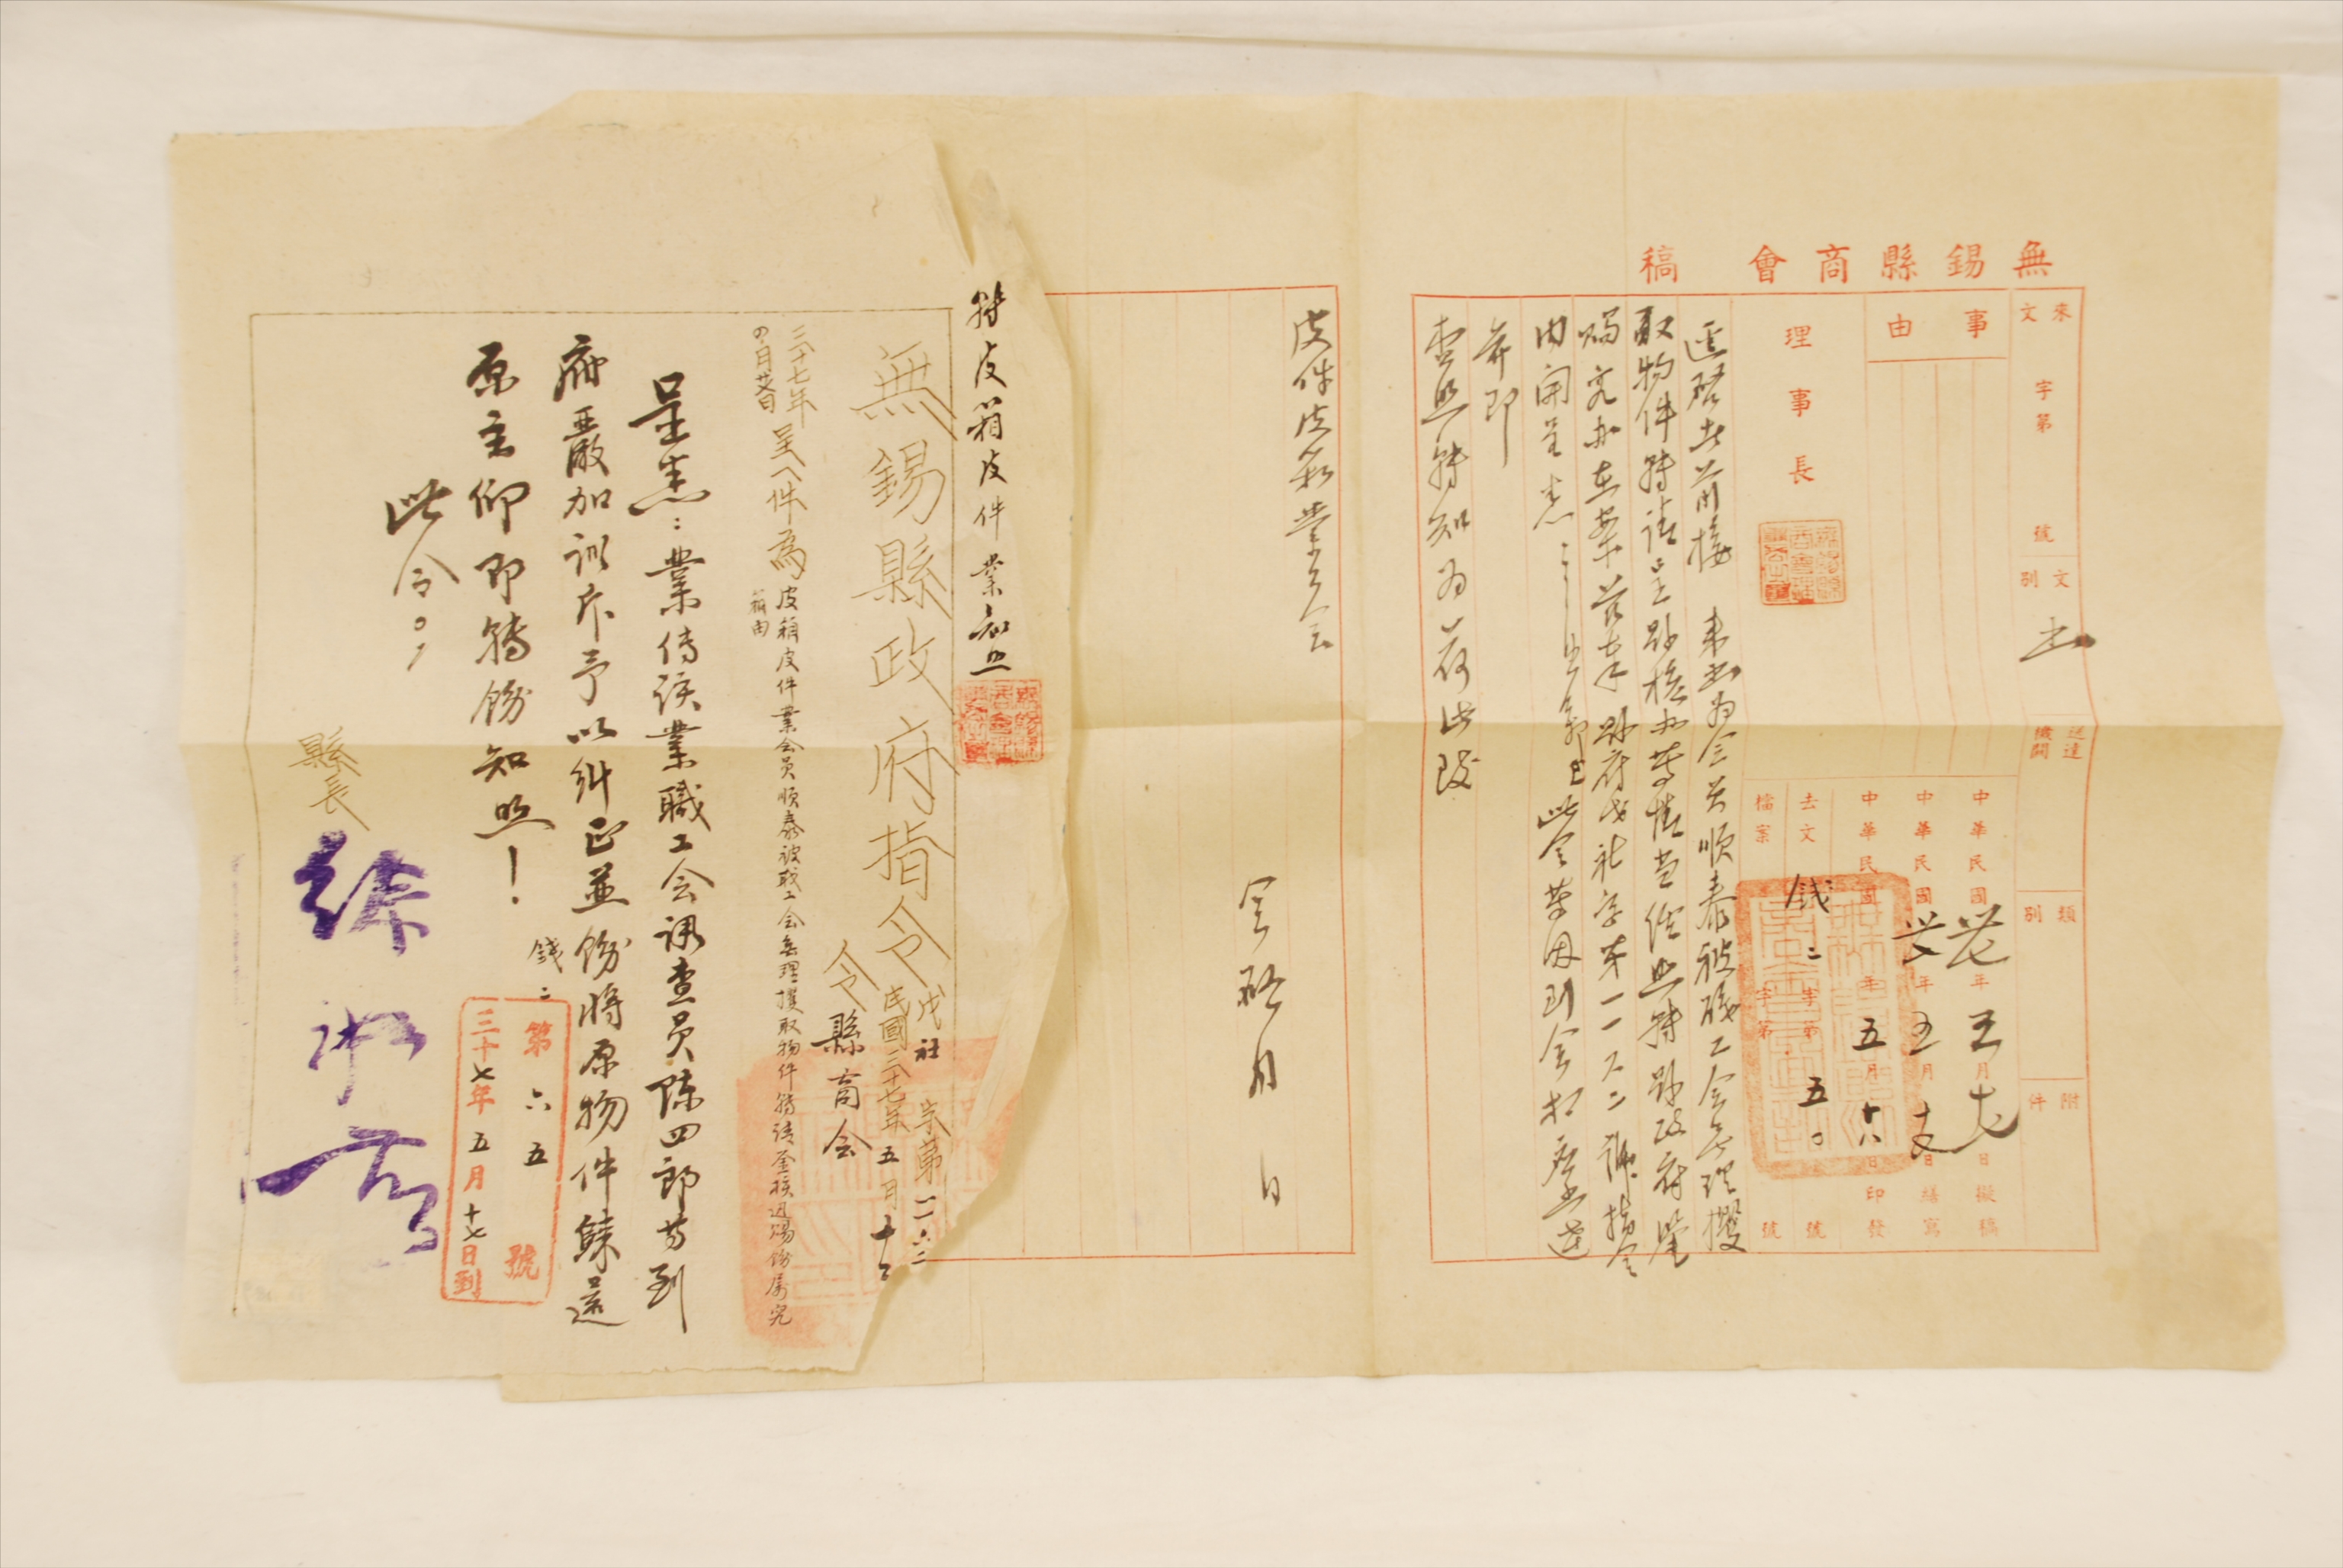 無錫縣商會稿
來文 字第 號
文別
送達機關
類別
附件
事由
理事長
中華民國 年五月 日擬稿
中華民國 年五月 日繕寫
中華民國 年五月十八日印發
去文 錢二字第五 號
檔案 字第 號
逕啓者前接 來函為會員順泰被職工會無理攫
取物件轉請呈縣核辦等情當經照轉縣政府鑒
賜究辦在案茲奉縣府戊社字第一一六二號指令
內開呈悉
此令等因到會相應達
希即
查照轉知為荷此致
皮件皮箱業公會
全啓 月 日
轉皮箱皮件業知照
無錫縣政府指令
戊社字第一一六二
民國三十七年五月十
令縣商會
三十七年
呈一件為皮箱皮件業會員順泰被職工會無理攫取物件轉請鑒核迅賜飭屬究
辦由
呈悉：業傳該業職工会調查員陳四郎等到
府嚴加訓斥予以糾正並飭將原物件歸還
原主仰即轉飭知照！
此令。
縣長
錢二
第六五號
三十七年五月十七日到